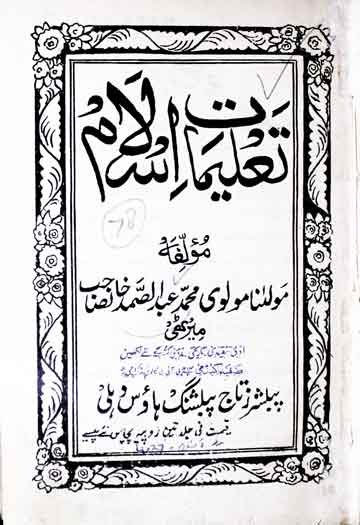 تعلیمات اسلام
78
مؤلفہ
مولٰنا مولوی محمد عبدالصمد خانصاحب
میرٹھی
پبلشرز تاج پبلشنگ ہاؤس دہلی
قیمت فی جلد تین روپیہ پچاس نئے پیسے